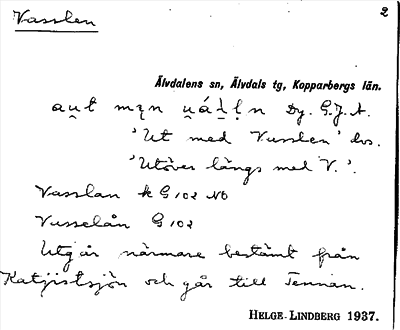 Vasslen
2
Älvdalens sn, Älvdals tg, Kopparbergs län.
'Ut med Vusslen' dvs.
'Utöver längs med V.'.
Vasslan k G 102 NO
Vusselån G 102
Utgår närmare bestämt från
Katjistsjön och går till Tennån.
HELGE LINDBERG 1937.